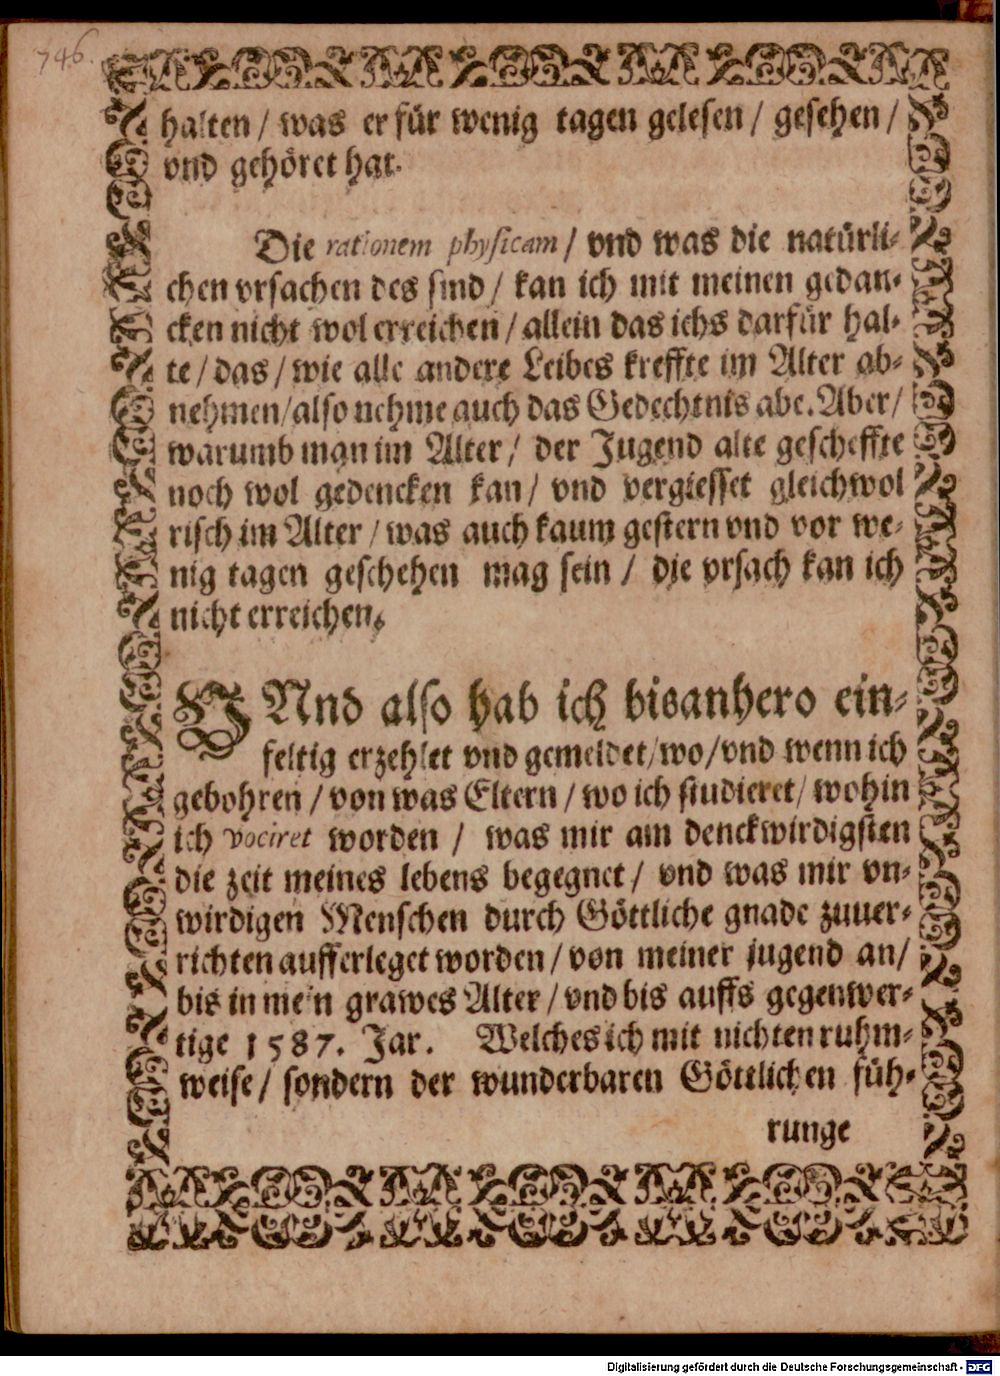 746.
halten / was er für wenig tagen gelesen / gesehen /
vnd gehöret hat.
Die rationem physicam / vnd was die natürli-
chen vrsachen des sind / kan ich mit meinen gedan-
cken nicht wol erreichen / allein das ichs darfür hal-
te / das / wie alle andere Leibes kreffte im Alter ab-
nehmen / also nehme auch das Gedechtnis abe. Aber /
warumb man im Alter / der Jugend alte gescheffte
noch wol gedencken kan / vnd vergiesset gleichwol
risch im Alter / was auch kaum gestern vnd vor we-
nig tagen geschehen mag sein / die vrsach kan ich
nicht erreichen.
VNnd also hab ich bisanhero ein-
feltig erzehlet vnd gemeldet / wo / vnd wenn ich
gebohren / von was Eltern / wo ich studieret / wohin
ich vociret worden / was mir am denckwirdigsten
die zeit meines lebens begegnet / vnd was mir vn-
wirdigen Menschen durch Göttliche gnade zuuer-
richten aufferleget worden / von meiner jugend an /
bis in mein grawes Alter / vnd bis auffs gegenwer-
tige 1587. Jar. Welches ich mit nichten ruhm-
weise / sondern der wunderbaren Göttlichen füh-
runge
Digitalisierung gefördert durch die Deutsche Forschungsgemeinschaft - DFG